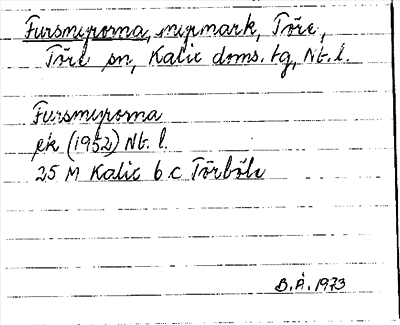 Fursmyrorna, myrmark, Töre,
Töre sn, Kalix doms. tg, Nt. l.
Fursmyrorna
ek (1952) Nt. l.
25 M Kalix 6 c Törböle
B.Å. 1973